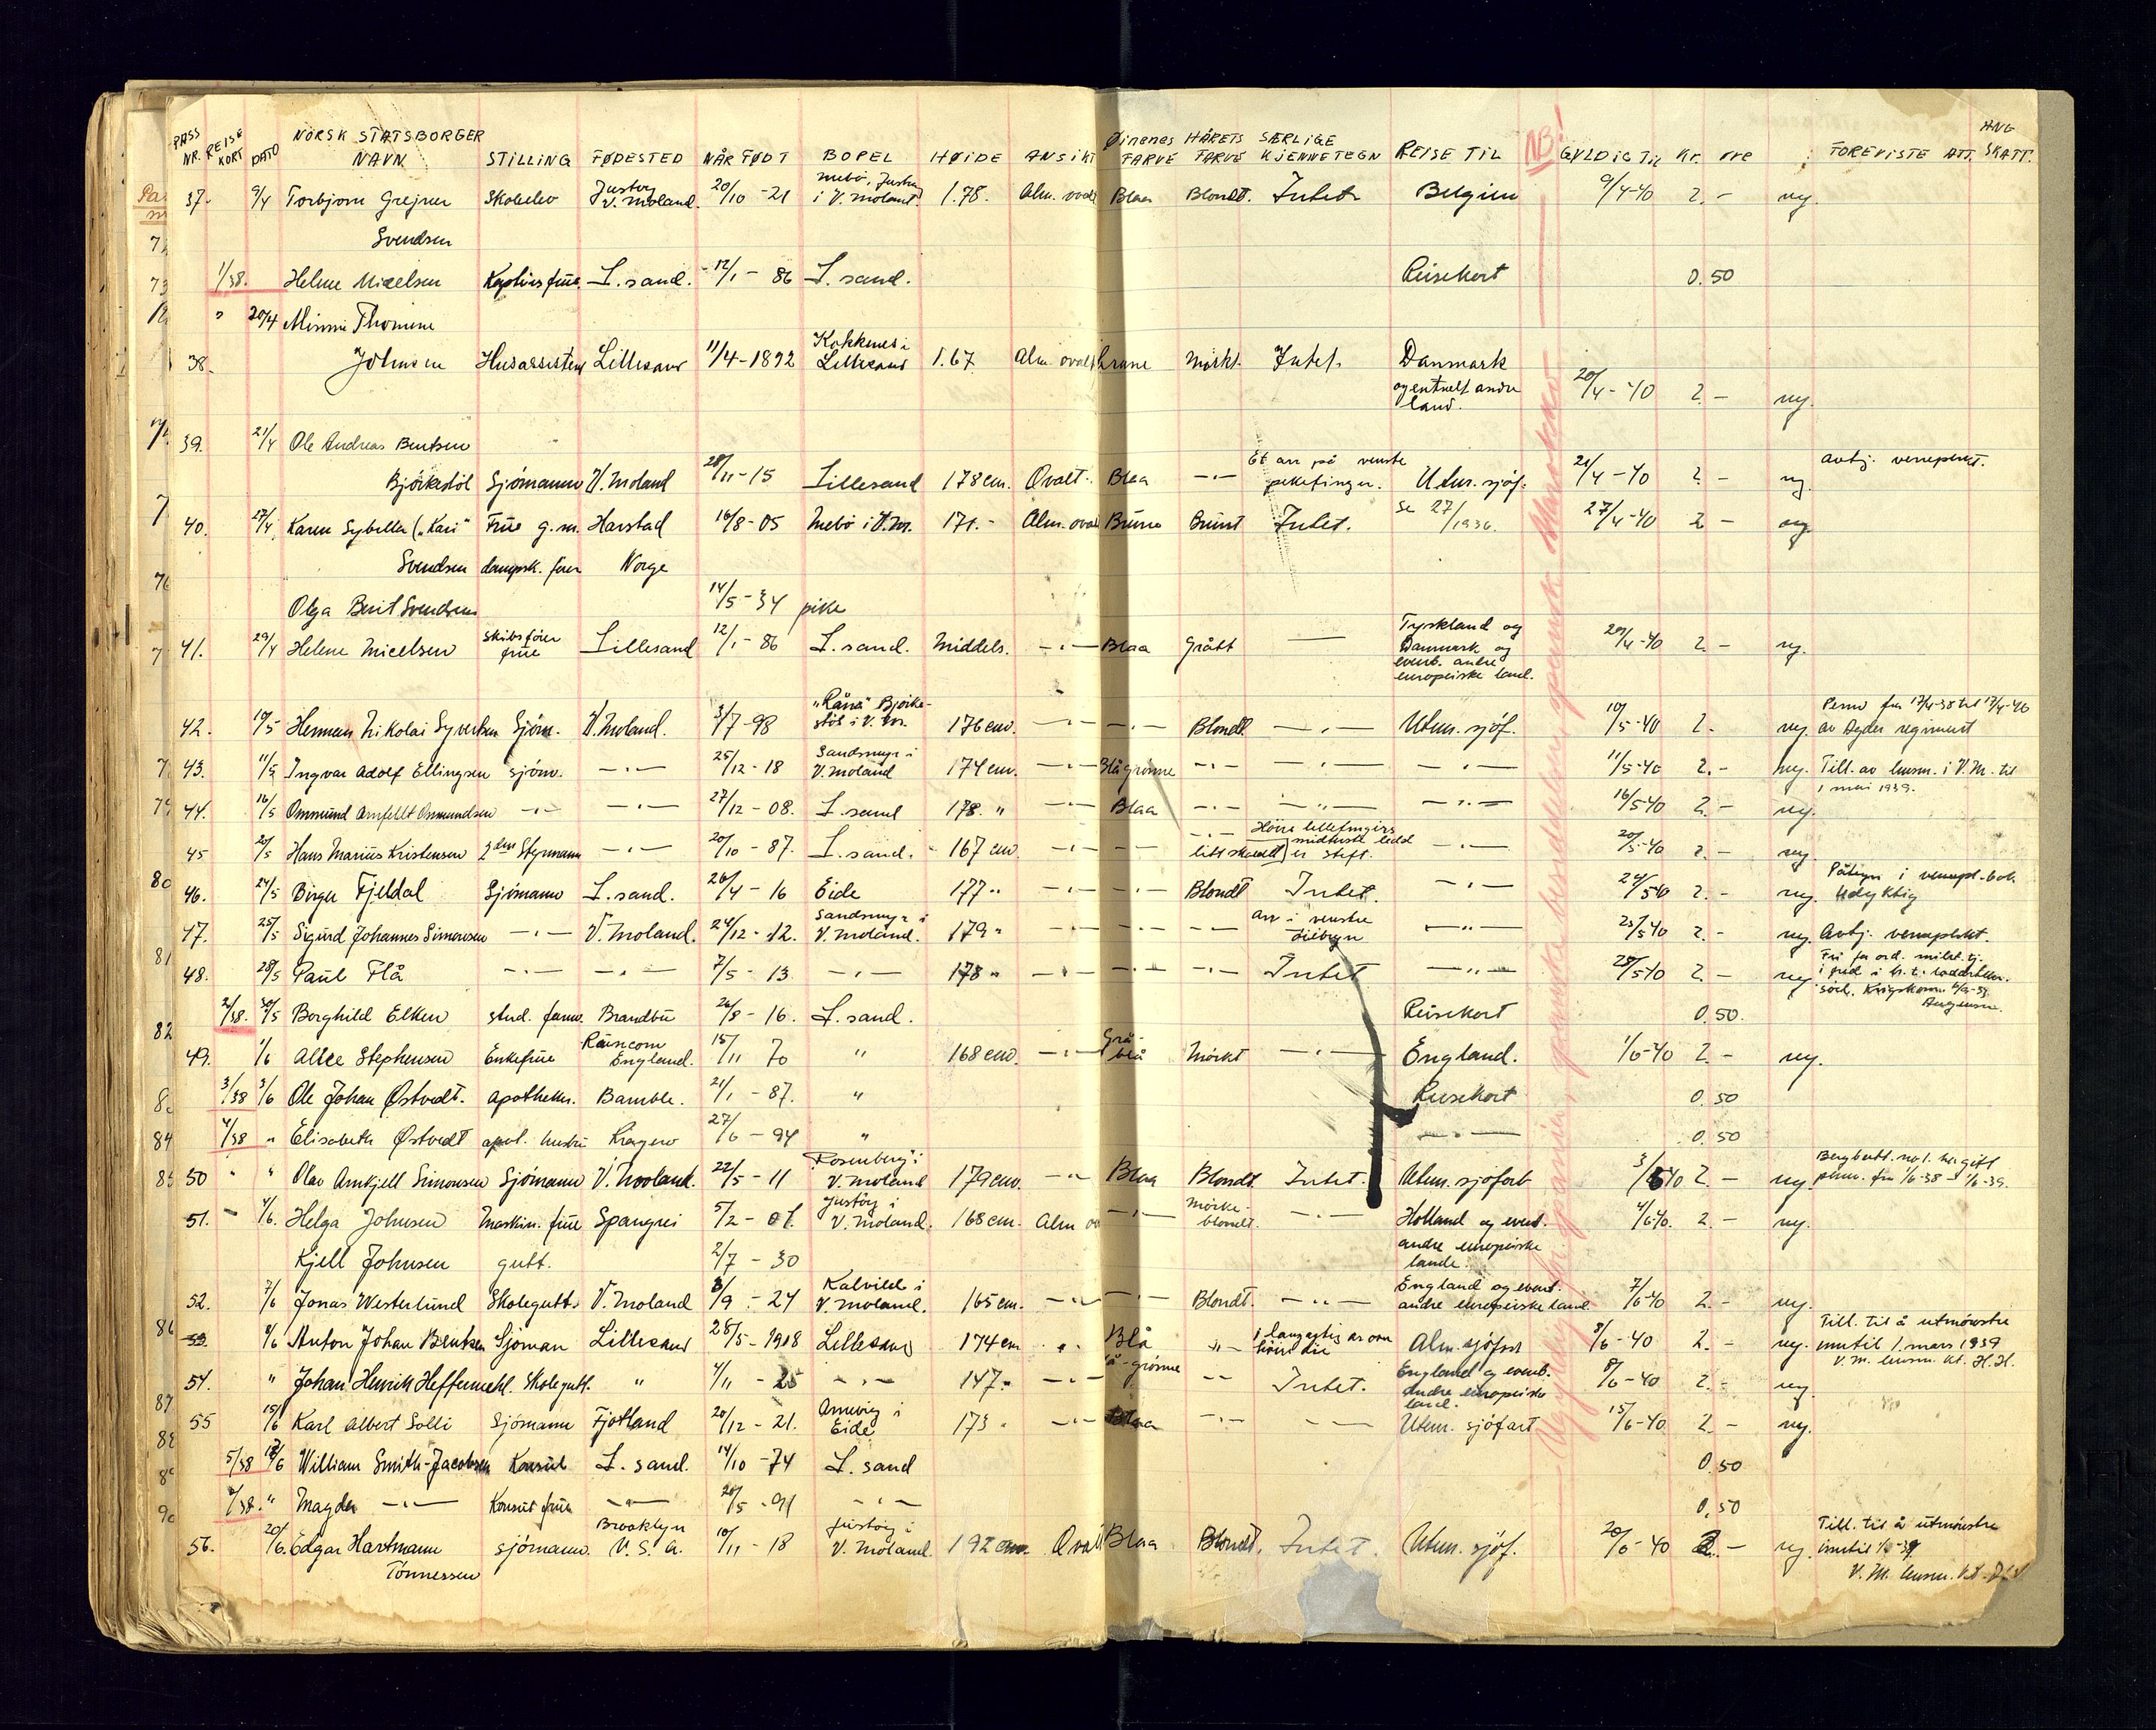 PASS NR. REISE KORT DATO NORSK STATSBORGER NAVN STILLING FØDESTED NÅR FØDT BOPEL HØIDE ANSIKT ØINENES FARVE HÅRETS FARVE SÆRLIGE KJENNETEGN REISE TIL NB! GYLDIG TIL KR. ØRE FOREVISTE ATT. ANG SKATT.
37. 9/4 Torbjørn Grejner Skoleelev Justøy V. Moland. 20/10 - 21 Mebø, Justøy i V. Moland 1.78. Alm. ovalt Blaa Blondt. Intet Belgien 9/4-40 2.- ny.
Svendsen
1/38. Helene Micelsen Kapteins frue L. sand. 12/1 - 86 L. sand. Reisekort 0.50
" 20/4 Minni Thomine
38. Johnsen Husassistent Lillesand 11/4-1892 Kokkenes i Lillesand 1.67 Alm. ovalt brune Mørkt. Intet. Danmark
og eventuelt andre land. 20/4-40 2.- ny.
39. 21/4 Ole Andreas Bentsen
Bjørkestøl Sjømann V. Moland 28/11-15 Lillesand 178 cm. Ovalt Blaa -"- Et arr på venstre pekefinger. Utenr. sjøf. 21/4-40 2.- ny. avtj. verneplikt.
40. 27/4 Karen Sybella ("Kari" Frue g.m. Harstad 16/8-05 Mebø i V.M. 171.- Alm. ovalt Brune Brunt Intet. Se 27/ 1936. 27/4-40 2 - ny.
Svendsen dampsk. fører Norge
Olga Berit Svendsen 14/5-34 pike
41. 29/4 Helene Micelsen Skibsfører frue Lillesand 12/1-86 L. sand. Middels. -"- Blaa Grått — Tyskland og Danmark og event. andre europeiske land. 29/4-40 2.- ny.
42. 10/5 Herman Nikolai Syvertsen Sjøm. V. Moland. 3/7-98 "Råna" Bjørkestøl i V.M. 176 cm. -"- -"- Blondt -"- Utenr. sjøf. 10/5-40 2.- ny. Perm. fra 17/4-38 til 17/4-40 av Agder regiment
43. 11/5 Ingvar Adolf Ellingsen sjøm. -"- 25/12-18 Sandsmyr i V. Moland 174 cm. -"- Blågrønne -"- -"- -"- 11/5-40 2.- ny. Till. av lensm. i V.M. til 1 mai 1939.
44. 16/5 Ommund Arnfelt Ommundsen -"- -"- 27/12-08. L. sand 178 " -"- Blaa -"- -"- -"- 16/5-40 2.- ny.
45 20/5 Hans Marius Kristensen 2den Styrmann -"- 20/10-87. L. sand. 167 cm. -"- -"- Høire lillefingers midterste ledd er stift. -"- 20/5-40 2.- ny.
46. 24/5 Birger Fjeldal Sjømann L. sand. 26/4-16 Eide 177 " -"- -"- Blondt Intet. -"- 24/5-40 2.- ny. Påtegn i vernepl.bok Udyktig
47. 25/5 Sigurd Johannes Simonsen -"- V. Moland. 24/12-12. Sandsmyr i V. Moland. 179 " -"- -"- -"- Arr i venstre øiebryn -"- 25/5-40 2.- ny. Avtj. verneplikt.
48. 28/5 Paul Flå -"- -"- 7/5-13 -"- 178 " -"- -"- -"- Intet -"- 28/5-40 2.- ny. Fri for ord. milit. tj.
2/38. 30/5 Borghild Elken stud. farm. Brandbu 26/8-16. L. sand. Reisekort 0.50.
49. 1/6 Alice Stephensen Enkefrue Runcorn England. 15/11 70 " 168 cm. -"- Grå-blå Mørkt -"- England. 1/6-40 2.- ny.
3/38 3/6 Ole Johan Østvedt. apotheker. Bamble. 21/1-87. " Reisekort 0.50
4/38 " Elisabeth Østvedt apot. hustru Kragerø 27/6-94 " -"- 0.50
50 " " Olav Arnkjell Simonsen Sjømann V. Moland. 22/5-11 "Rosenberg" i V. Moland 179 cm. -"- Blaa Blondt Intet. Utenr. sjøfart 3/6-40 2.- ny.
51. - 4/6. Helga Johnsen Maskin. frue Spangrei 5/2-07. Justøy i V. Moland. 168 cm. Alm ov -"- Mørkeblondt. -"- Holland og event. 4/6-40. 2.- ny.
Kjell Johnsen gutt. 2/7-30 andre europeiske lande.
52. 7/6 Jonas Westerlund Skolegutt V. Moland 3/9-24 Kalvild i V. Moland. 165 cm. -"- -"- Blondt. -"- England og event. andre europeiske land. 7/6-40 2.- ny.
53. 8/6 Anton Johan Bentsen Sjøman Lillesand 28/5-1918 Lillesand 174 cm " Blå -"- 1 langagtig ar over høire øie Alm. sjøfart 8/6-40 2.- ny. Till. til å utmønstre inntil 1. mars 1939 V.M. lensm. kt. H.H.
54. " Johan Henrik Heffermehl. Skolegutt. " 4/11-25 -"- 147 " -"- -grønne -"- Intet. England og event. andre europeiske land. 8/6-40 2.- ny.
55 15/6 Karl Albert Solli Sjømann Fjotland 20/12-21. Arnevig i Eide 173 " -"- Blaa -"- — Utenr. sjøfart 15/6-40 2.- ny.
5/38 17/6 William Smith-Jacobsen Konsul L. sand. 14/10-74 L. sand 0.50
6/38. " Magda -"- Konsul frue -"- 20/5-91 -"- 0.50
56. 20/6. Edgar Hartmann sjømann. Brooklyn U.S.A. 10/11-18 Justøy i V. Moland. 192 cm. Ovalt Blaa Blondt. Intet. Utenr. sjøf. 20/6-40 2.- ny. Till. til å utmønstre inntil 1/6-39 V.M. lensm. kt.
Tønnessen